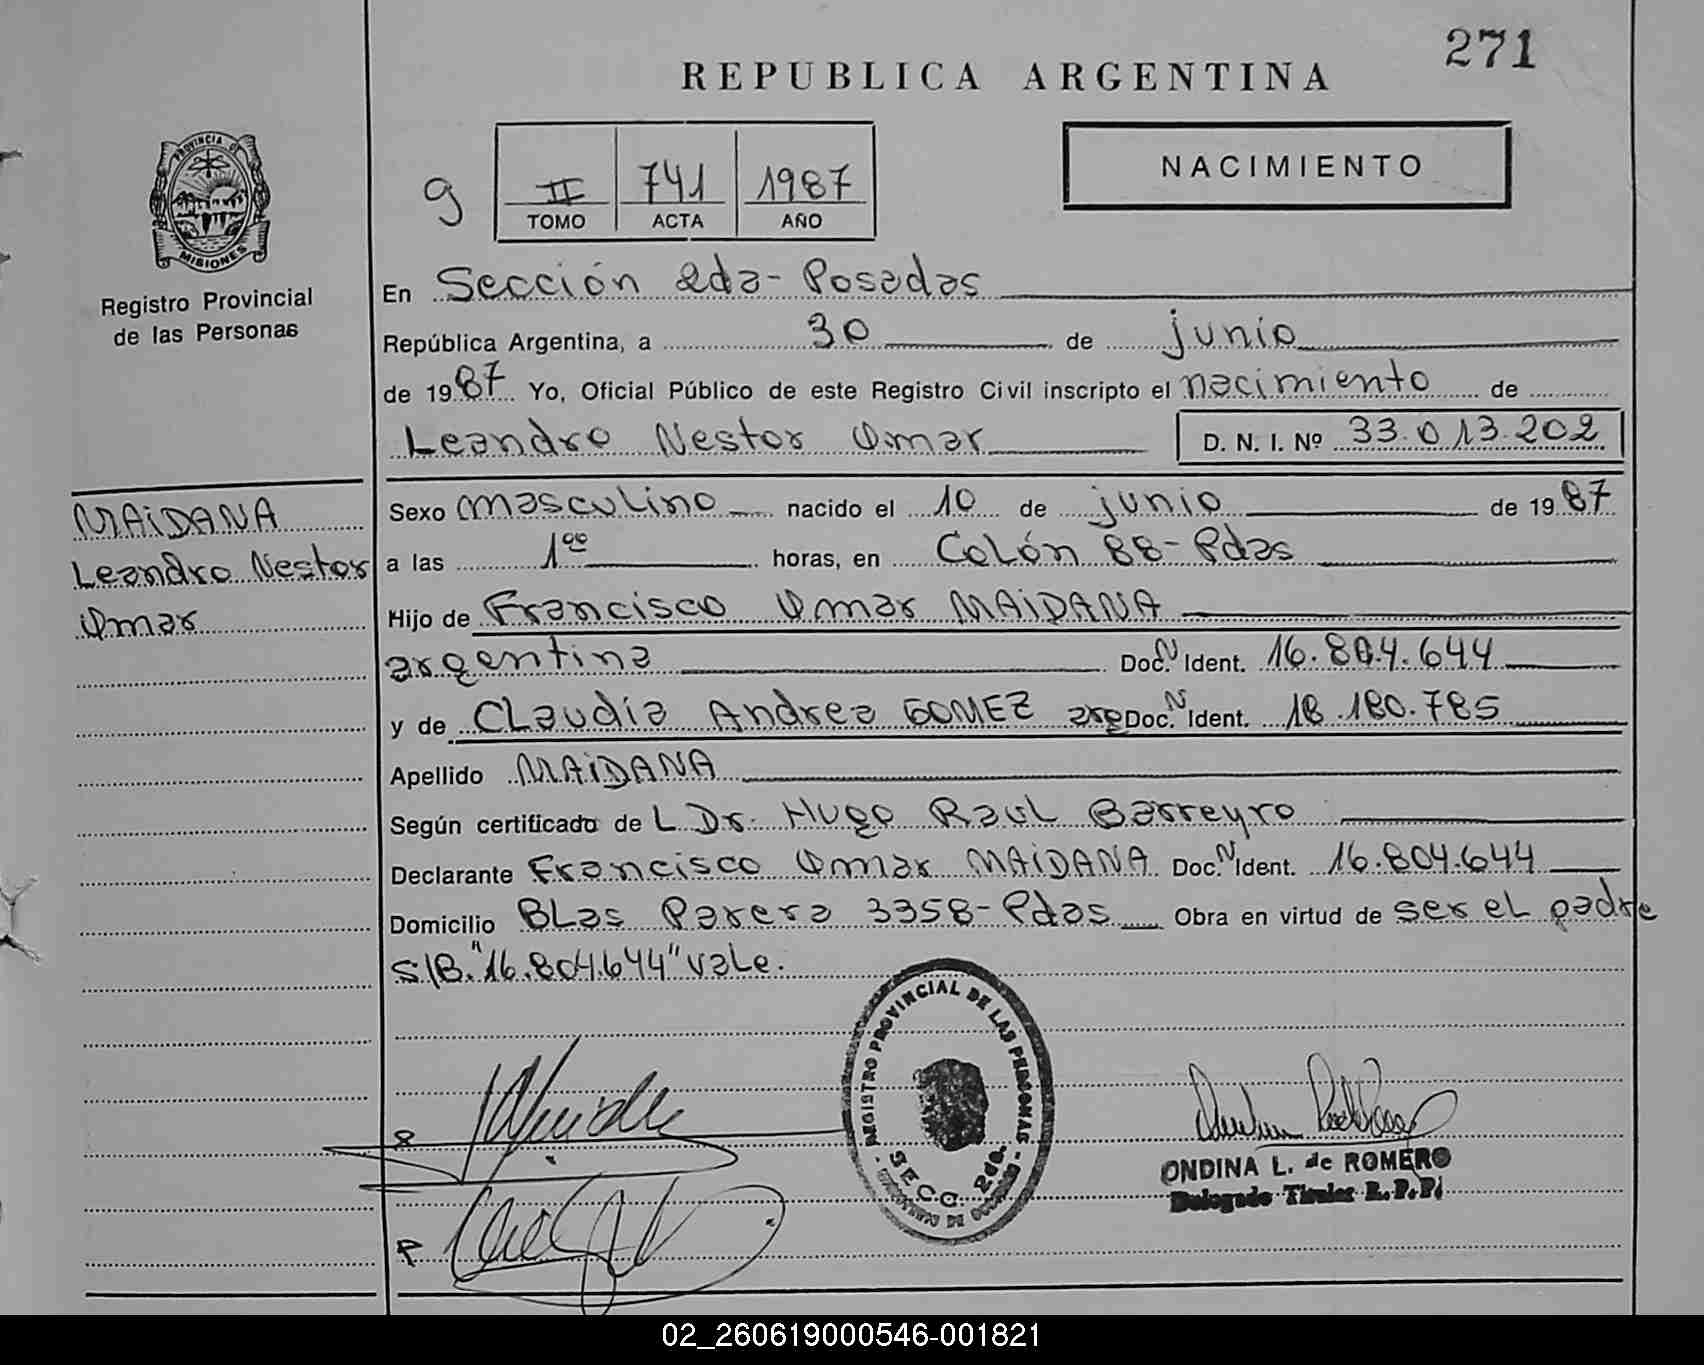 271
REPUBLICA ARGENTINA
NACIMIENTO
9 II 741 1987
TOMO ACTA AÑO
PROVINCIA DE
MISIONES
Registro Provincial
de las Personas
En Sección 2da- Posadas
República Argentina, a 30 de junio
de 1987 Yo, Oficial Público de este Registro Civil inscripto el nacimiento de
Leandro Nestor Omar D. N. I. Nº 33.013.202
MAiDANA
Leandro Nestor
Omar
Sexo masculino nacido el 10 de junio de 1987
a las 1ºº horas, en Colón 88- Pdas
Hijo de Francisco Omar MAiDANA
argentina Doc. N Ident. 16.804.644
y de Claudia Andrea GOMEZ arg Doc. N Ident. 18.180.785
Apellido MAiDANA
Según certificado de L Dr. Hugo Raul Barreyro
Declarante Francisco Omar MAiDANA Doc. N Ident. 16.804.644
Domicilio BLas Parera 3358- Pdas Obra en virtud de ser el padre
S/B. "16.804.644" vale.
REGISTRO PROVINCIAL DE LAS PERSONAS
SECC. 2da.
ONDINA L. de ROMERO
Delegado Titular R.P.P.
02_260619000546-001821